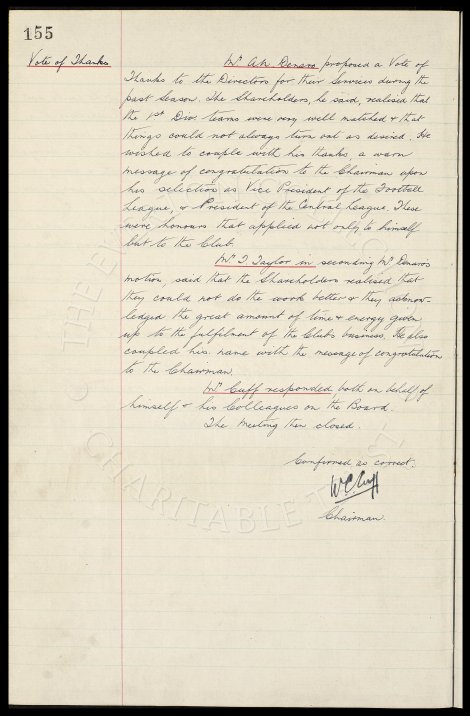 155
Vote of Thanks
Mr A.N. Denaro proposed a Vote of
Thanks to the Directors for their Services during the
past Season. The Shareholders, he said, realised that
the 1st Divn teams were very well matched & that
things could not always turn out as desired. He
wished to couple with his thanks a warm
message of congratulation to the Chairman upon
his selection as Vice President of the Football
League, & President of the Central League. These
were honours that applied not only to himself
but to the Club.
Mr T. Taylor in seconding Mr Denaros
motion said that the Shareholders realised that
they could not do the work better & they acknow-
ledged the great amount of time & energy given
up to the fulfilment of the Clubs business. He also
coupled his name with the message of congratulation
to the Chairman.
Mr Cuff responded, both on behalf of
himself & his Colleagues on the Board.
The Meeting then closed.
Confirmed as correct.
W.C. Cuff
Chairman.
CHARITABLE